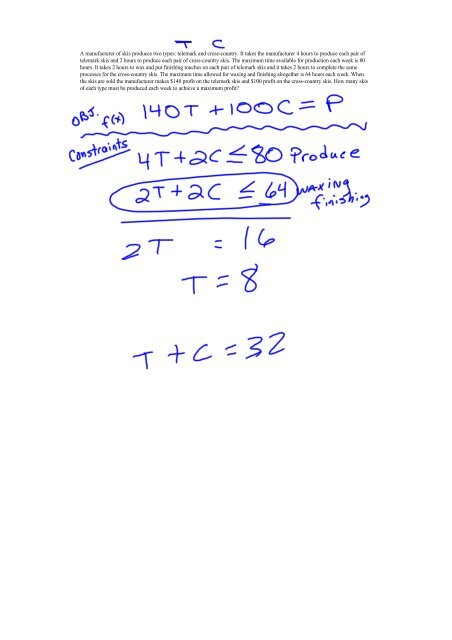 T C
A manufacturer of skis produces two types: telemark and cross-country. It takes the manufacturer 4 hours to produce each pair of
telemark skis and 2 hours to produce each pair of cross-country skis. The maximum time available for production each week is 80
hours. It takes 2 hours to wax and put finishing touches on each pair of telemark skis and it takes 2 hours to complete the same
processes for the cross-country skis. The maximum time allowed for waxing and finishing altogether is 64 hours each week. When
the skis are sold the manufacturer makes $140 profit on the telemark skis and $100 profit on the cross-country skis. How many skis
of each type must be produced each week to achieve a maximum profit?
OBJ. f(x) 140T + 100C = P
Constraints
4T + 2C ≤ 80 Produce
2T + 2C ≤ 64 WAXING
finishing
2T = 16
T = 8
T + C = 32